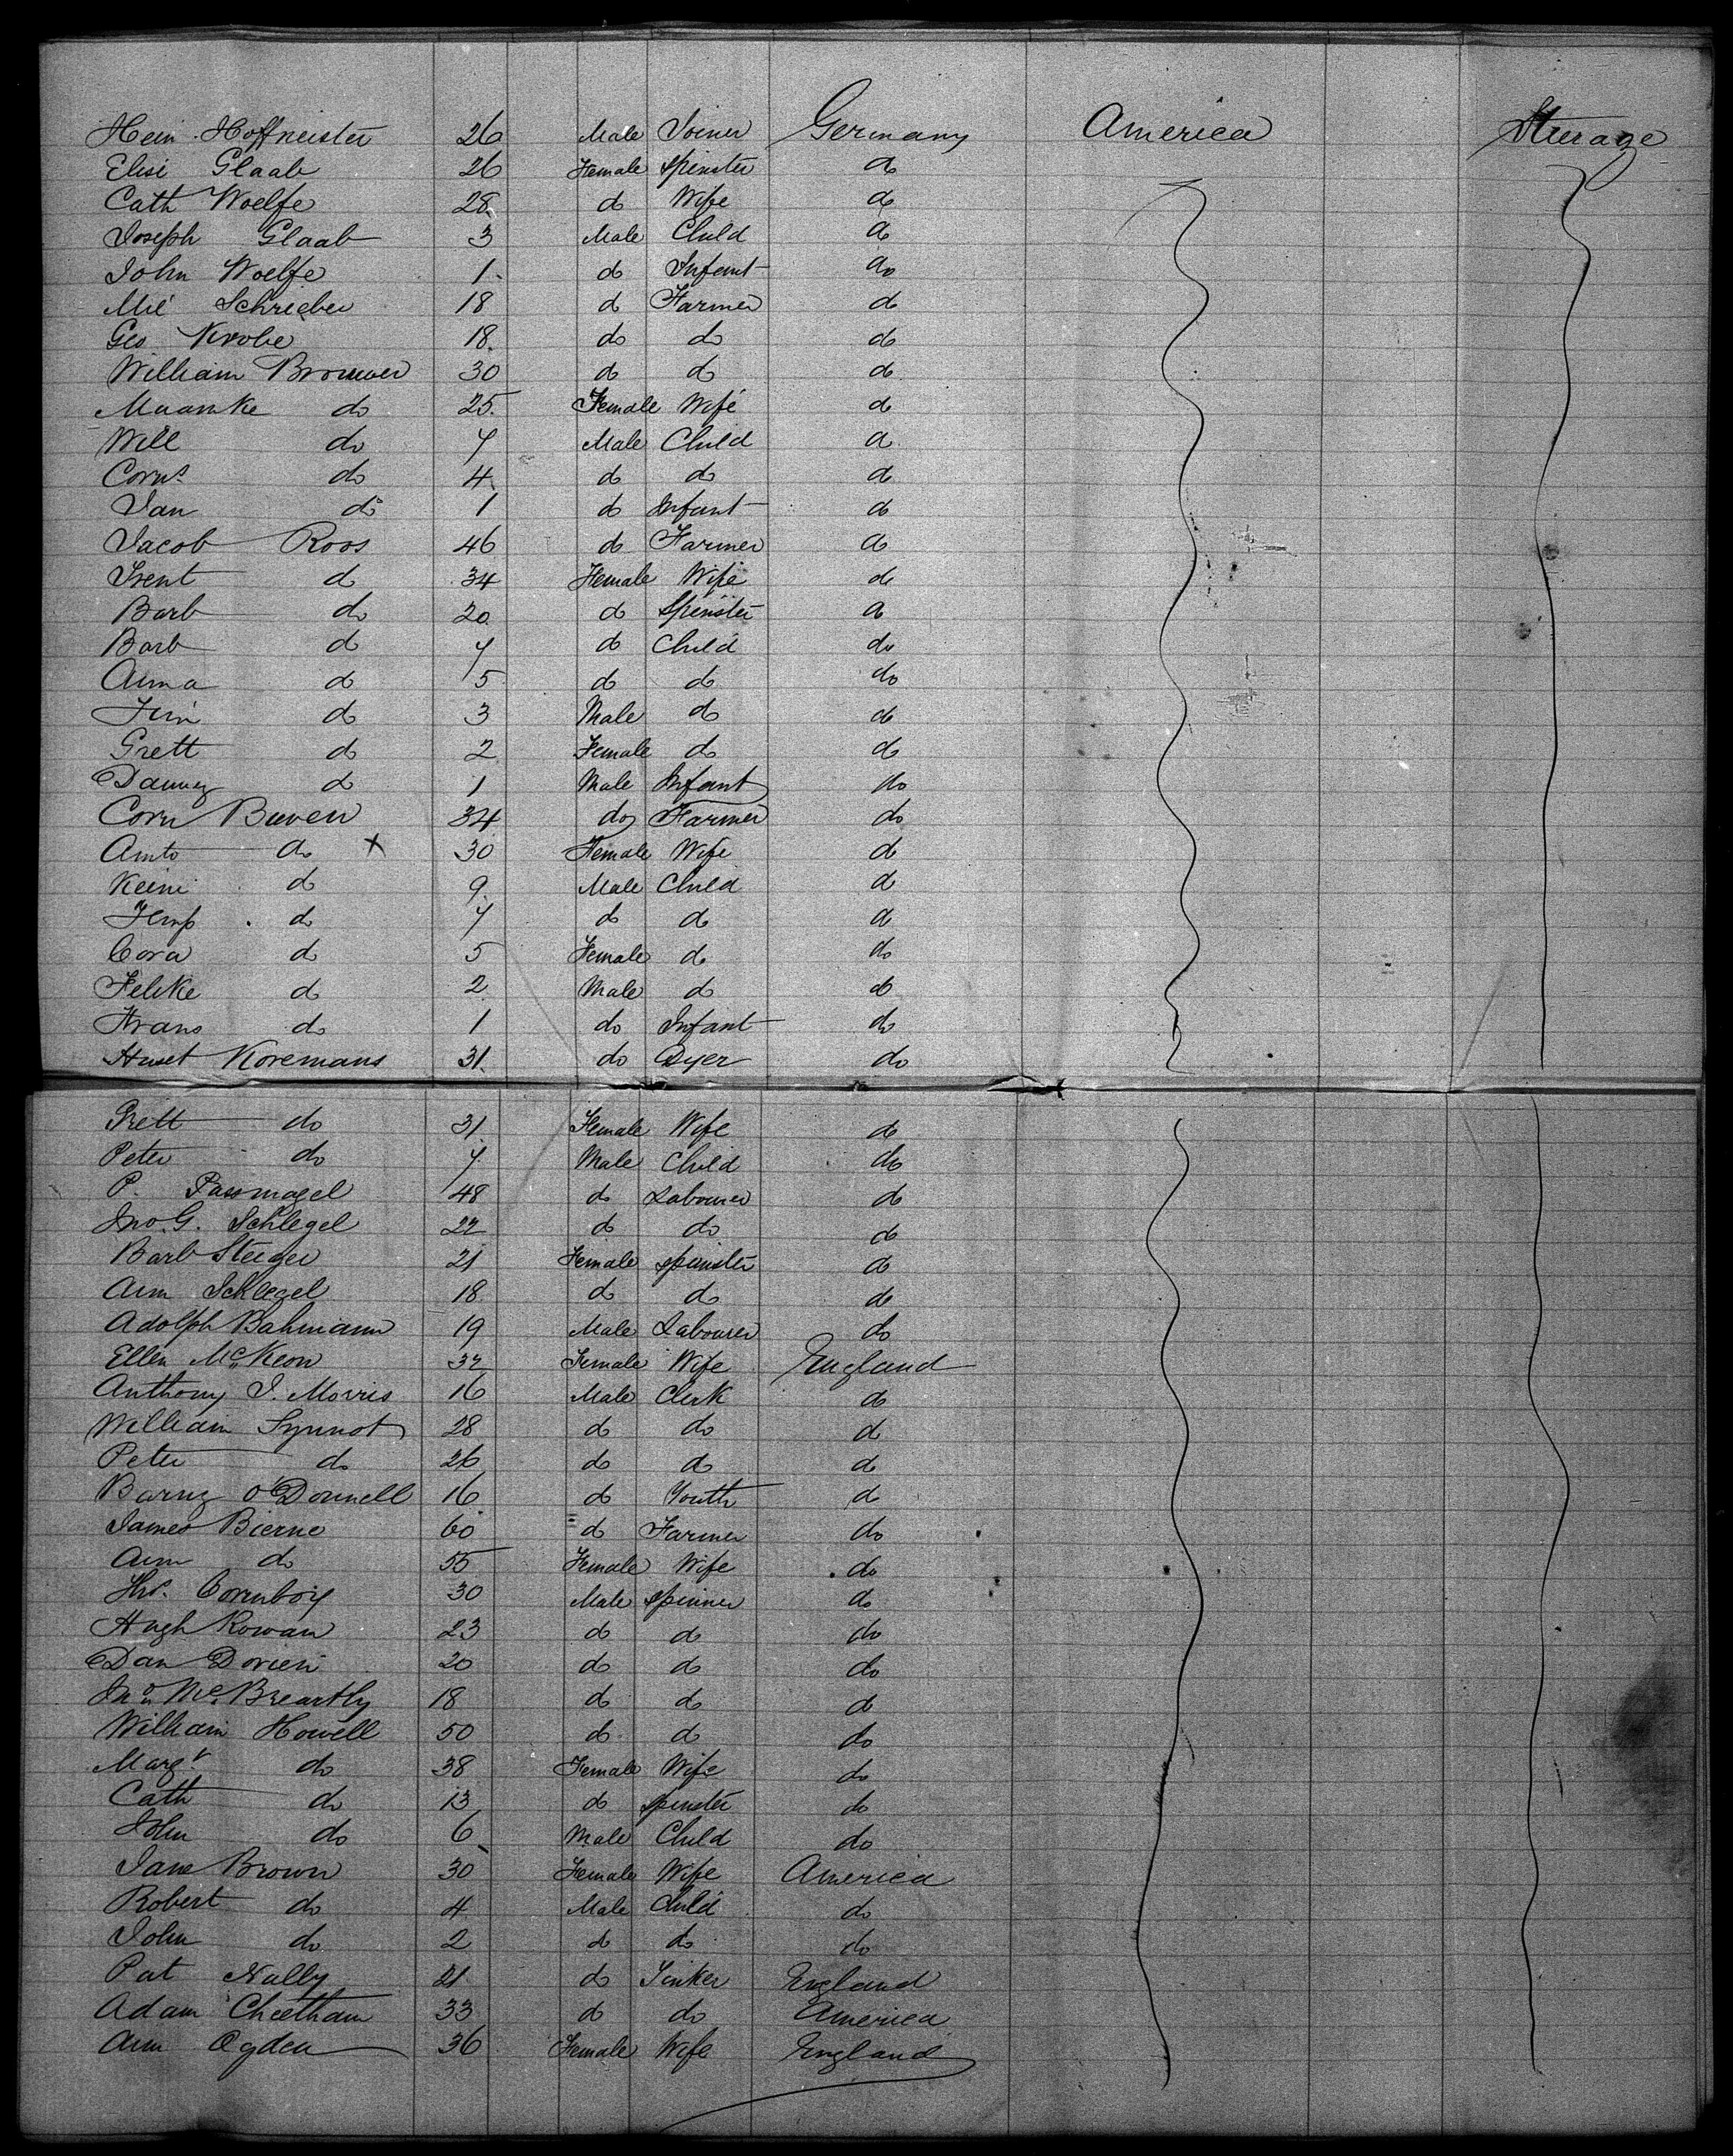 Hein Hoffmeister 26 Male Joiner Germany America Steerage
Elise Glaab 26 Female Spinster do
Cath Woelfe 28 do Wife do
Joseph Glaab 3 Male Child do
John Woelfe 1 do Infant do
Mic Schrieber 18 do Farmer do
Geo Krobe 18 do do do
William Brouwer 30 do do do
Maamke do 25 Female Wife do
Will do 7 Male Child do
Corns do 4 do do do
Jan do 1 do Infant do
Jacob Roos 46 do Farmer do
Trent do 34 Female Wife do
Barb do 20 do Spinster do
Barb do 7 do Child do
Anna do 5 do do do
do 3 Male do do
Grett do 2 Female do do
do 1 Male Infant do
Corn Buven 34 do Farmer do
Anto do x 30 Female Wife do
Keini do 9 Male Child do
do 7 do do do
Cora do 5 Female do do
Felike do 2 Male do do
Frans do 1 do Infant do
Koremans 31 do Dyer do
Grett do 31 Female Wife do
Peter do 7 Male Child do
P. Passmagel 48 do Labourer do
Jno. G. Schlegel 22 do do do
Barb Steiger 21 Female Spinster do
Ann Schlegel 18 do do do
Adolph Bahmann 19 Male Labourer do
Ellen McKeon 32 Female Wife England
Anthony J. Morris 16 Male Clerk do
William Synnot 28 do do do
Peter do 26 do do do
Barny O'Donnell 16 do Youth do
James Bierne 60 do Farmer do
Ann do 55 Female Wife do
Thos. Cornboy 30 Male Spinner do
Hugh Rowan 23 do do do
Dan Dorien 20 do do do
Jno. Mc. Breartly 18 do do do
William Howell 50 do do do
Margt do 38 Female Wife do
Cath do 13 do Spinster do
John do 6 Male Child do
Jane Brown 30 Female Wife America
Robert do 4 Male Child do
John do 2 do do do
Pat Nally 21 do Tinker England
Adam Cheetham 33 do do America
Ann Ogden 36 Female Wife England